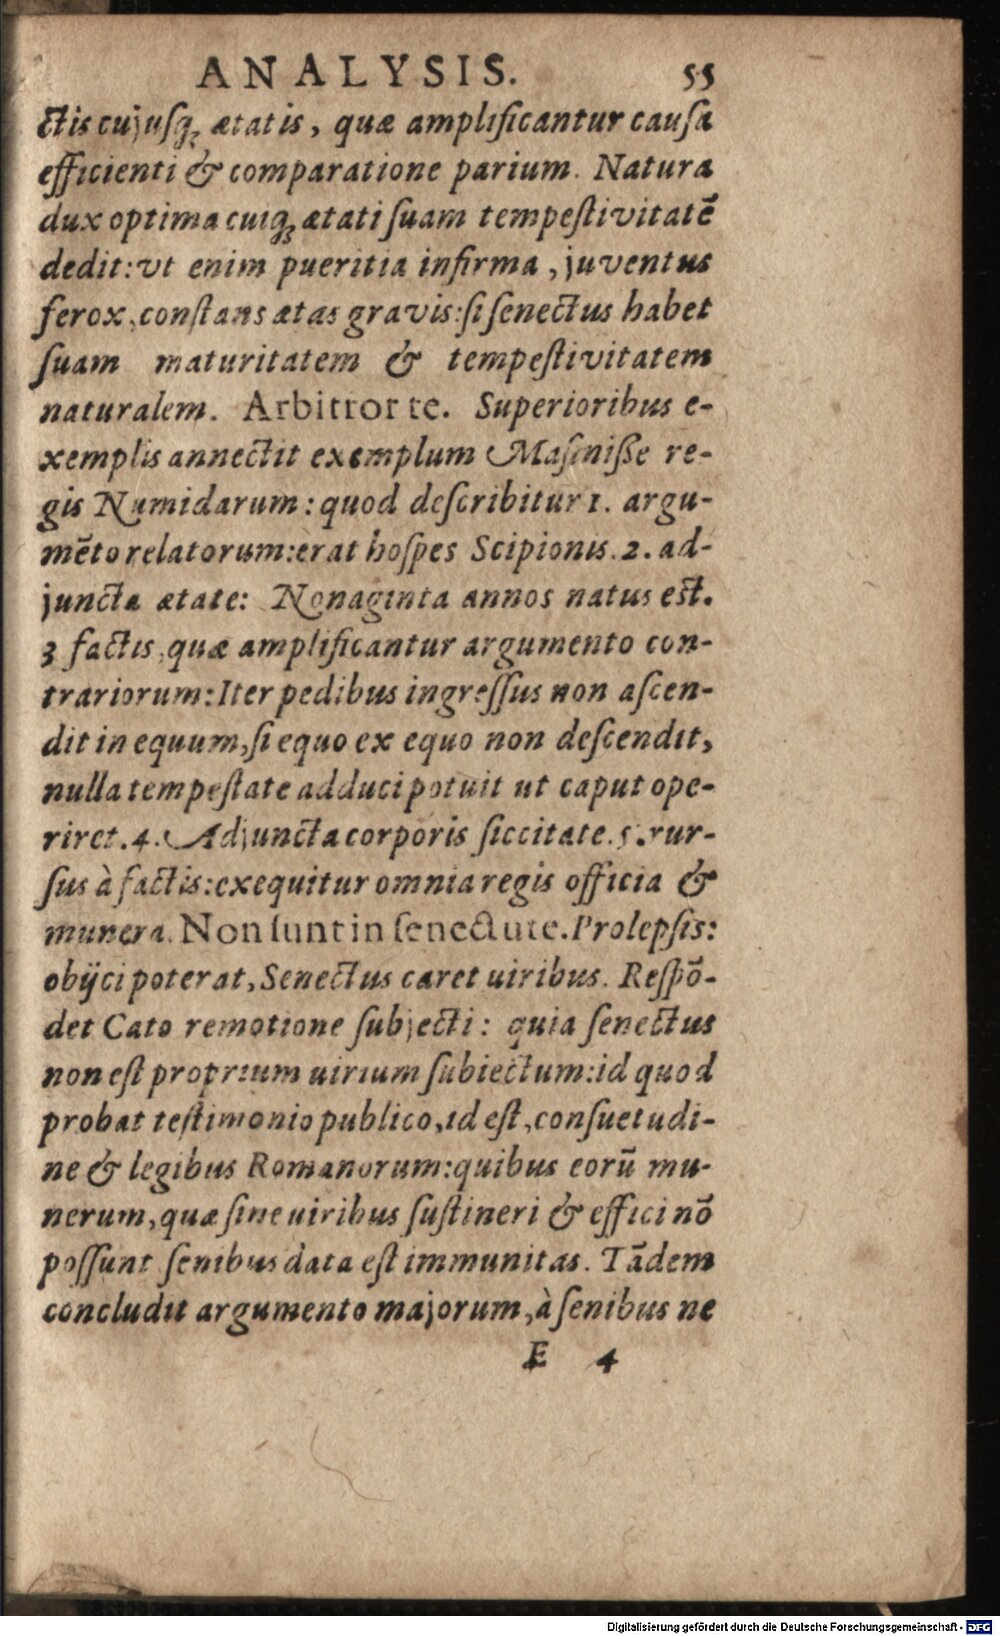 ANALYSIS. 55
ctis cujusq; ætatis, quæ amplificantur causa
efficienti & comparatione parium. Natura
dux optima cuiq; ætati suam tempestivitatē
dedit: vt enim pueritia infirma, juventus
ferox, constans ætas gravis: si senectus habet
suam maturitatem & tempestivitatem
naturalem. Arbitror te. Superioribus e-
xemplis annectit exemplum Masinissæ re-
gis Numidarum: quod describitur 1. argu-
mēto relatorum: erat hospes Scipionis. 2. ad-
juncta ætate: Nonaginta annos natus est.
3 factis, quæ amplificantur argumento con-
trariorum: Iter pedibus ingressus non ascen-
dit in equum, si equo ex equo non descendit,
nulla tempestate adduci potuit ut caput ope-
riret. 4. Adjuncta corporis siccitate. 5. rur-
sus à factis: exequitur omnia regis officia &
munera. Non sunt in senectute. Prolepsis:
obijci poterat, Senectus caret uiribus. Respō-
det Cato remotione subjecti: quia senectus
non est proprium uirium subiectum: id quod
probat testimonio publico, id est, consuetudi-
ne & legibus Romanorum: quibus eorū mu-
nerum, quæ sine uiribus sustineri & effici nō
possunt senibus data est immunitas. Tādem
concludit argumento majorum, à senibus ne
E 4
Digitalisierung gefördert durch die Deutsche Forschungsgemeinschaft - DFG